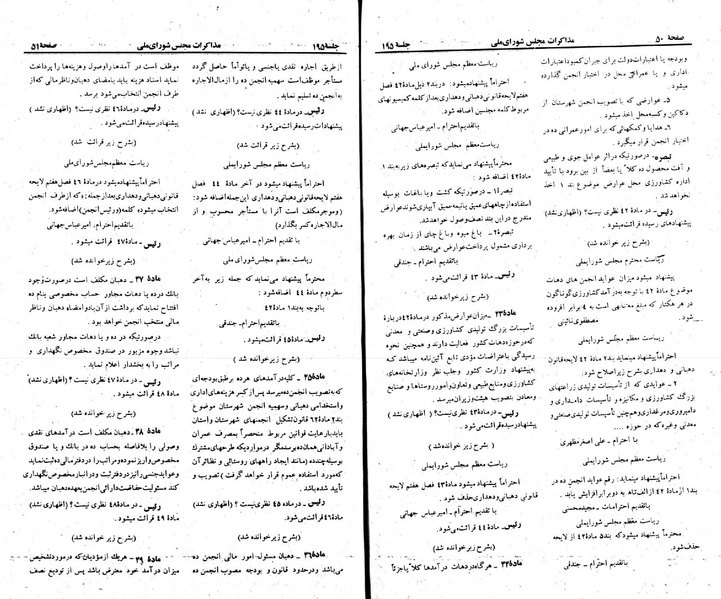 صفحهٔ ۵۰
مذاکرات مجلس شورای ملی
جلسهٔ ۱۹۵
وبودجه یا اعتبارات دولت برای جبران کمبود اعتبارات
اداری و یا عمرانی محل در اختیار انجمن گذارده
میشود.
۵ـ عوارضی که با تصویب انجمن شهرستان از
دکاکین و کسبه محل اخذ میشود.
۶ـ هدایا و کمکهائی که برای امور عمرانی ده در
اختیار انجمن قرار میگیرد.
تبصره ـ درصورتیکه در اثر عوامل جوی و طبیعی
و آفت محصول ده کلاً یا بعضاً از بین برود با تأیید
اداره کشاورزی محل عوارض موضوع بند ۱ اخذ
نخواهد شد.
رئیس ـ در ماده ۴۲ نظری نیست؟ (اظهاری نشد)
پیشنهادهای رسیده قرائت میشود.
(بشرح زیر خوانده شد)
ریاست محترم مجلس شورایملی
پیشنهاد میشود میزان عواید انجمن های دهات
موضوع مادهٔ ۴۲ با توجه به درآمد کشاورزی گوناگون
در هر هکتار که مبلغ معتنابهی است به ۴ برابر افزوده
شود. مصطفوی نائینی
ریاست معظم مجلس شورایملی
احتراماً پیشنهاد مینماید بند ۲ ماده ۴۲ لایحه قانون
دهبانی و دهداری بشرح زیر اصلاح شود:
۲ ـ عوایدی که از تأسیسات تولیدی زراعتهای
بزرگ کشاورزی و مکانیزه و تأسیسات دامداری و
دامپروری و مرغداری و همچنین تأسیسات تولیدی صنعتی و
معدنی وغیره که در حوزه ....
با احترام ـ علی اصغر مظهری
ریاست معظم مجلس شورایملی
احتراماً پیشنهاد مینماید: رقم عواید انجمن ده در
بند ۱ از مادهٔ ۴۲ از الف تا ه به دو برابر افزایش یابد.
با تقدیم احترامات ـ مجید محسنی
ریاست معظم مجلس شورایملی
محترماً پیشنهاد میشود که بند ۵ مادهٔ ۴۲ از لایحه
حذف شود. باتقدیم احترام ـ جندقی
ریاست معظم مجلس شورای ملی
احتراماً پیشنهاد میشود: در بند ۲ ذیل ماده ۴۲ فصل
هفتم لایحه قانونی دهبانی و دهداری بعد از کلمه کمیسیونهای
مربوط کلمه مجلسین اضافه شود.
باتقدیم احترام ـ امیرعباس جهانی
ریاست معظم مجلس شورایملی
محترماً پیشنهاد مینماید که تبصره‌های زیر به بند ۱
مادهٔ ۴۲ اضافه شود:
تبصره ۱ـ درصورتیکه کشت و یا باغات بوسیله
استفاده از چاههای عمیق یا نیمه عمیق آبیاری شوند عوارض
مندرج در این بند نصف وصول خواهد شد.
تبصره ۲ـ باغ میوه و باغ چای از زمان بهره
برداری مشمول پرداخت عوارض می‌باشند.
باتقدیم احترام ـ جندقی
رئیس ـ مادهٔ ۴۳ قرائت می‌شود.
(بشرح زیر خوانده شد)
مادهٔ ۴۳ ـ میزان عوارض مذکور در ماده ۴۲ دربارهٔ
تأسیسات بزرگ تولیدی کشاورزی و صنعتی و معدنی
که در حوزه دهات کشور فعالیت دارند و همچنین نحوه
رسیدگی باعتراضات مؤدی تابع آئین‌نامه میباشد که
به پیشنهاد وزارت کشور وجلب نظر وزارتخانه‌های
کشاورزی و منابع طبیعی و تعاون وامور روستاها و صنایع
و معادن بتصویب هیئت وزیران میرسد.
رئیس ـ در ماده ۴۳ نظری نیست؟ (اظهاری نشد)
پیشنهاد رسیده قرائت می‌شود.
(بشرح زیر خوانده شد)
ریاست معظم مجلس شورایملی
احتراماً پیشنهاد میشود مادهٔ ۴۳ فصل هفتم لایحه
قانونی دهبانی و دهداری حذف شود.
باتقدیم احترام ـ امیرعباس جهانی
رئیس ـ مادهٔ ۴۴ قرائت می‌شود.
(بشرح زیر خوانده شد)
مادهٔ ۴۴ ـ هرگاه در دهات درآمدها کلاً یا جزئاً
جلسهٔ ۱۹۵
مذاکرات مجلس شورای ملی
صفحهٔ ۵۱
از طریق اجاره نقدی یا جنسی و یا توأماً حاصل گردد
مستأجر موظف است سهمیه انجمن ده را از مال الاجاره
به انجمن ده تسلیم نماید.
رئیس ـ در مادهٔ ۴۴ نظری نیست؟ (اظهاری نشد)
پیشنهادات رسیده قرائت می‌شود.
(بشرح زیر قرائت شد)
ریاست معظم مجلس شورایملی
احتراماً پیشنهاد میشود در آخر مادهٔ ۴۴ فصل
هفتم لایحه قانونی دهبانی و دهداری این جمله اضافه شود:
(وموجر مکلف است آنرا با مستأجر محسوب و از
مال الاجاره کسر بگذارد)
با تقدیم احترام ـ امیرعباس جهانی
ریاست معظم مجلس شورایملی
محترماً پیشنهاد می‌نماید که جمله زیر به آخر
سطر دوم مادهٔ ۴۴ اضافه شود:
باتوجه به بند ۱ ماده ۴۲
باتقدیم احترام ـ جندقی
رئیس ـ ماده ۴۵ قرائت میشود.
(بشرح زیر خوانده شد)
ماده ۴۵ ـ کلیه درآمدهای هرده برطبق بودجه‌ای
که به تصویب انجمن ده میرسد پس از کسر هزینه‌های اداری
و استخدامی دهبانی وسهمیه انجمن شهرستان موضوع
بند ۲ ماده ۶۲ قانون تشکیل انجمنهای شهرستان واستان
باید بارعایت قوانین مربوط منحصراً بمصرف عمران
و آبادانی همان ده برسد مگر در مواردیکه طرحهای مشترک
بوسیله چند ده (مانند ایجاد راههای روستائی و نظائر آن
که مورد استفاده عموم قرار خواهد گرفت) تصویب و
تأیید شده باشد.
رئیس ـ در ماده ۴۵ نظری نیست؟ (اظهاری نشد)
مادهٔ ۴۶ قرائت می‌شود.
(بشرح زیر خوانده شد)
مادهٔ ۴۶ ـ دهبان مسئول امور مالی انجمن ده
می‌باشد و در حدود قانون و بودجه مصوب انجمن ده
موظف است درآمدها را وصول و هزینه‌ها را پرداخت
نماید. اسناد هزینه باید بامضای دهبان و ناظر مالی که از
طرف انجمن انتخاب می‌شود برسد.
رئیس ـ در ماده ۴۶ نظری نیست؟ (اظهاری نشد)
پیشنهاد رسیده قرائت می‌شود.
(بشرح زیر قرائت شد)
ریاست معظم مجلس شورای ملی
احتراماً پیشنهاد میشود در ماده ۴۶ فصل هفتم لایحه
قانونی دهبانی و دهداری بعد از جمله: (که از طرف انجمن
انتخاب میشود کلمه (ورئیس انجمن) اضافه شود.
باتقدیم احترام، امیرعباس جهانی
رئیس ـ ماده ۴۷ قرائت میشود.
(بشرح زیر خوانده شد)
مادهٔ ۴۷ ـ دهبان مکلف است درصورت وجود
بانک در ده یا دهات مجاور حساب مخصوصی بنام ده
افتتاح نماید که برداشت از آن با دو امضاء دهبان وناظر
مالی منتخب انجمن خواهد بود.
درصورتیکه در ده و یا دهات مجاور شعبه بانک
نباشد وجوه مزبور در صندوق مخصوص نگهداری و
مراتب را به بخشدار اعلام نماید.
رئیس ـ در ماده ۴۷ نظری نیست؟ (اظهاری نشد)
مادهٔ ۴۸ قرائت میشود.
(بشرح زیر خوانده شد)
مادهٔ ۴۸ ـ دهبان مکلف است درآمدهای نقدی
وصولی را بلافاصله بحساب ده در بانک و یا صندوق
مخصوص واریز نموده و مراتب را در دفتر مالی ده ثبت نماید
وعواید جنسی را نیز در دفتر ثبت و در انبار مخصوص نگهداری
کند مسئولیت حفاظت دارائی انجمن بعهده دهبان میباشد.
رئیس ـ در ماده ۴۸ نظری نیست؟ (اظهاری نشد)
مادهٔ ۴۹ قرائت میشود.
(بشرح زیر خوانده شد)
مادهٔ ۴۹ ـ هریک از مؤدیان که در مورد تشخیص
میزان درآمد خود معترض باشد پس از تودیع نصف